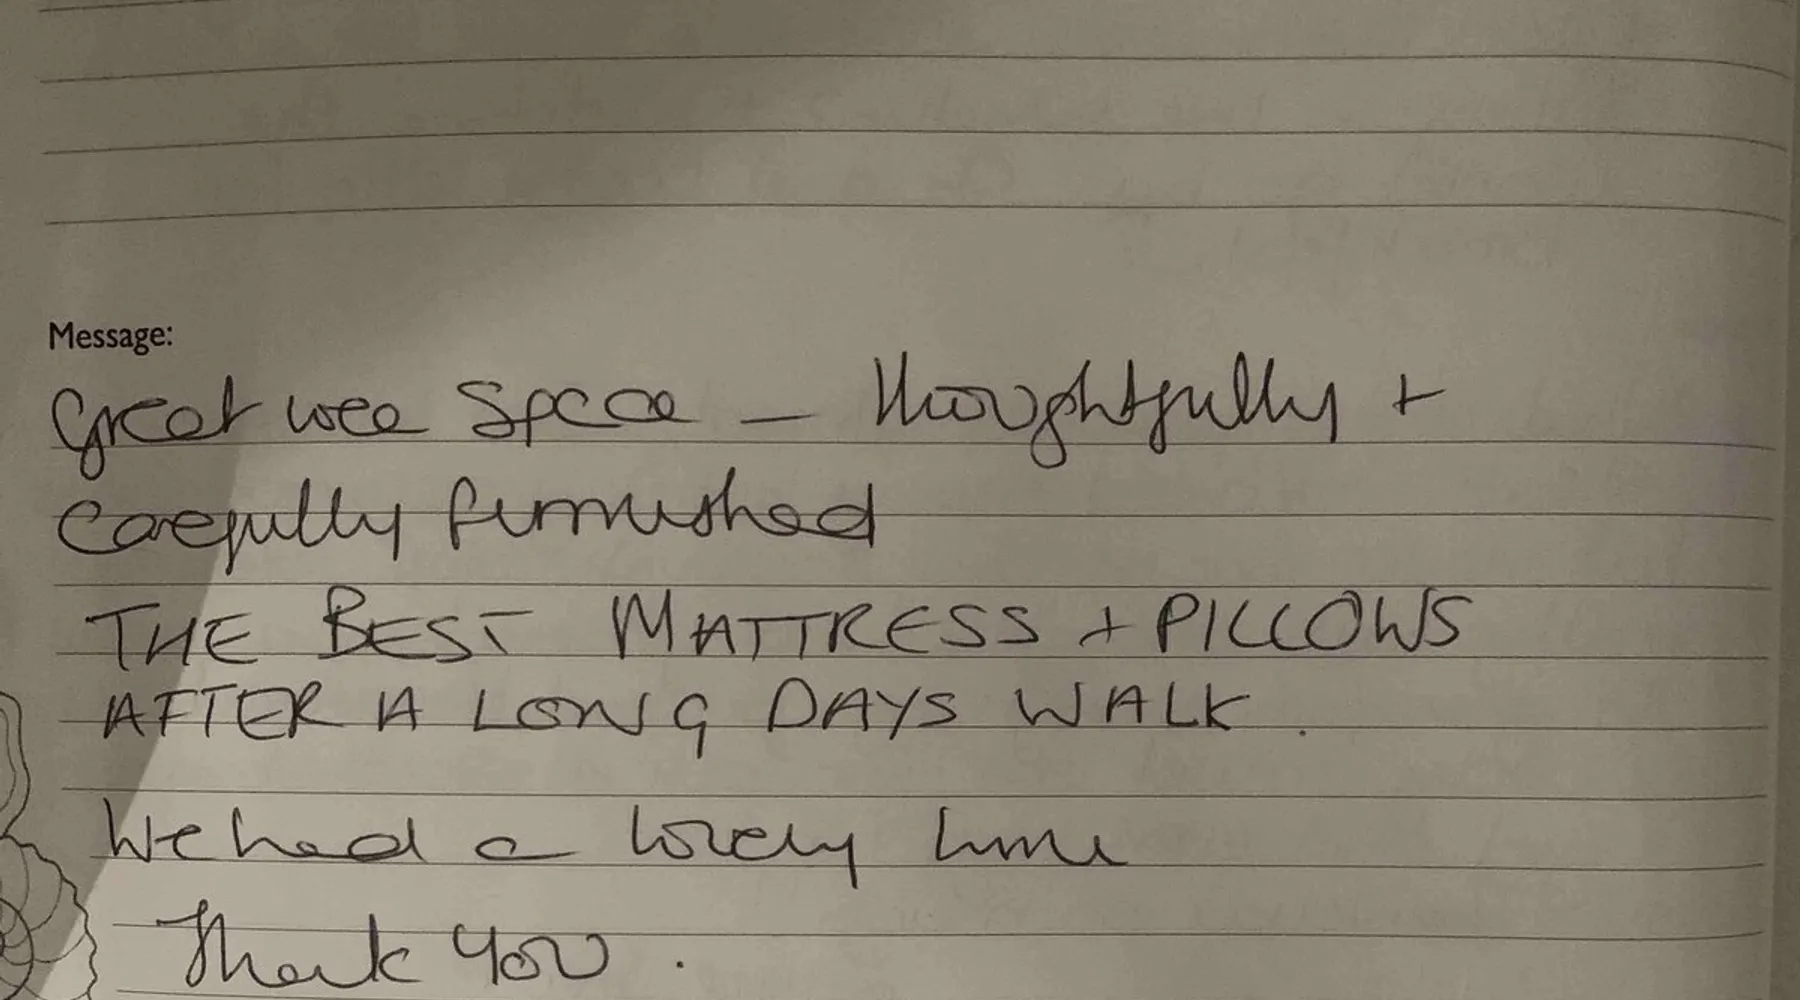 Message:
Great wee space – thoughtfully +
carefully furnished
THE BEST MATTRESS + PILLOWS
AFTER A LONG DAYS WALK.
We had a lovely time
Thank you.